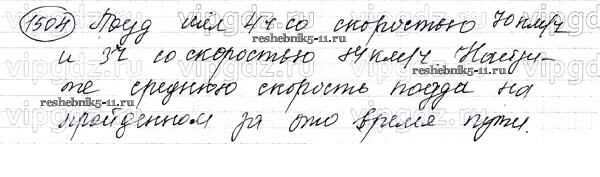 1504 Поезд шел 4ч со скоростью 70 км/ч
и 3ч со скоростью 84 км/ч. Найди-
те среднюю скорость поезда на
пройденном за это время пути.
reshebnik5-11.ru
reshebnik5-11.ru
reshebnik5-11.ru